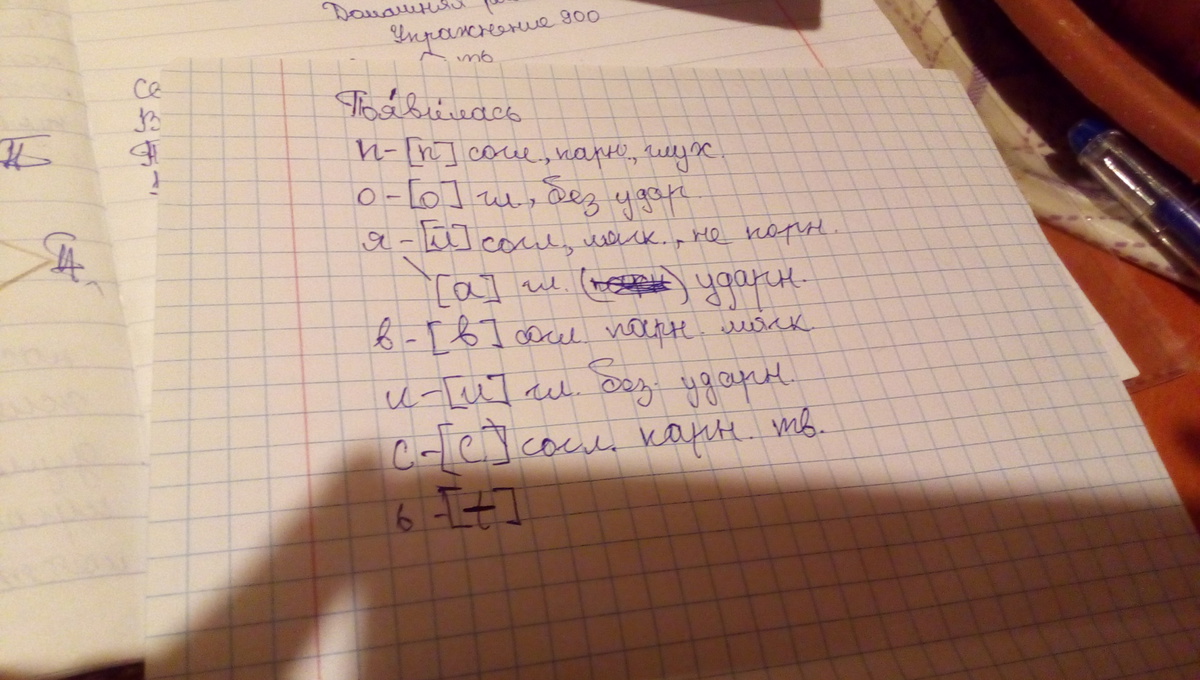 Домашняя
Упражнение 900
тв
Появилась
п-[п] согл., парн., глух.
о-[о] гл., без удар.
я-[й] согл., мягк., не парн.
[а] гл. ( ) ударн.
в-[в] согл. парн. мягк
и-[и] гл. без ударн.
с-[с] согл. парн. тв.
ь-[ ]